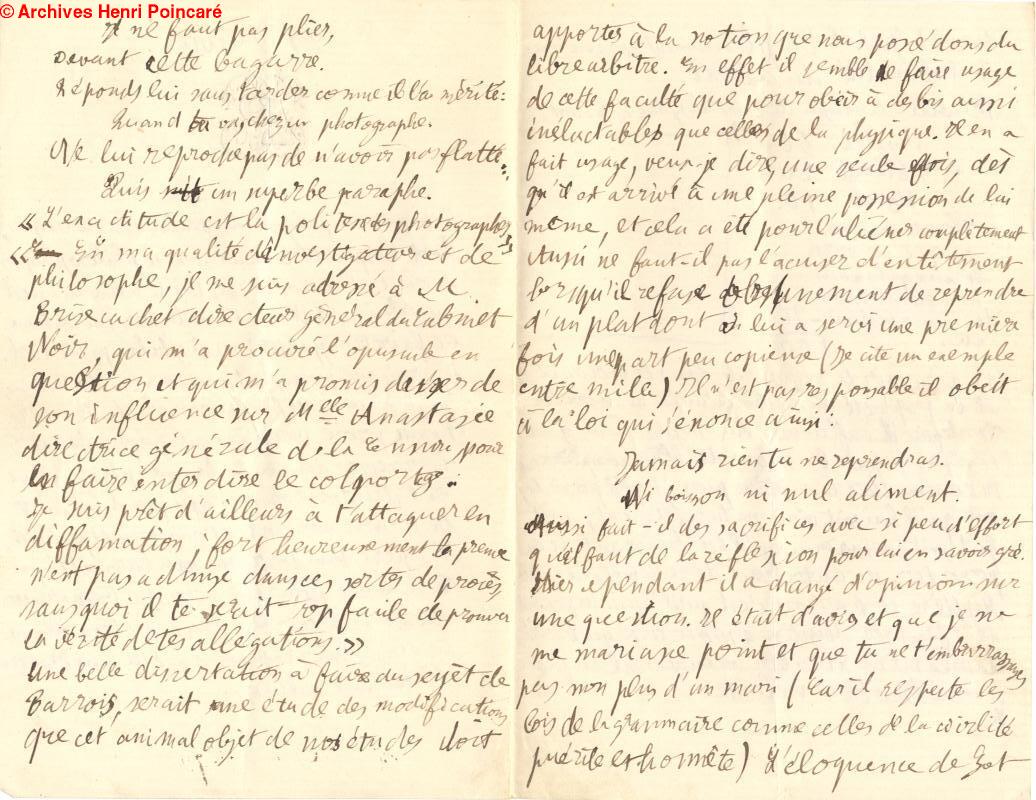 © Archives Henri Poincaré
Il ne faut pas plier,
Devant cette bagarre.
Réponds lui sans tarder comme il l'a mérité:
Quand tu vas chez un photographe.
Ne lui reproche pas de n'avoir pas flatté...
Puis un superbe paraphe.
« L'exactitude est la politesse des photographes »
« En ma qualité d'investigateur et de
philosophe, je me suis adressé à M.
Brisecachet directeur général du Cabinet
Noir, qui m'a procuré l'opuscule en
question et qui m'a promis d'user de
son influence sur Mlle Anastasie
directrice générale de la Censure pour
en faire interdire le colportage.
Je suis prêt d'ailleurs à t'attaquer en
diffamation; fort heureusement la preuve
n'est pas admise dans ces sortes de procès
sans quoi il te serait trop facile de prouver
la vérité de tes allégations. »
Une belle dissertation à faire du sujet de
Barrois, serait une étude des modifications
que cet animal objet de nos études doit
apporter à la notion que nous possédons du
libre arbitre. En effet il semble ne faire usage
de cette faculté que pour obéir à des lois aussi
inéluctables que celles de la physique. Il en a
fait usage, veux-je dire, une seule fois, dès
qu'il est arrivé à une pleine possession de lui
même, et cela a été pour l'aliéner complètement
Aussi ne faut-il pas l'accuser d'entêtement
lorsqu'il refuse obstinément de reprendre
d'un plat dont on lui a servi une première
fois une part peu copieuse (Je cite un exemple
entre mille) Il n'est pas responsable il obéit
à la loi qui s'énonce ainsi:
Jamais rien tu ne reprendras.
Ni boisson ni nul aliment.
Aussi fait-il des sacrifices avec si peu d'effort
qu'il faut de la réflexion pour lui en savoir gré.
Hier cependant il a changé d'opinion sur
une question. Il était d'avis et que je ne
me mariasse point et que tu ne t'embarrasses
pas non plus d'un mari (car il respecte les
lois de la grammaire comme celles de la civilité
puérile et honnête) L'éloquence de